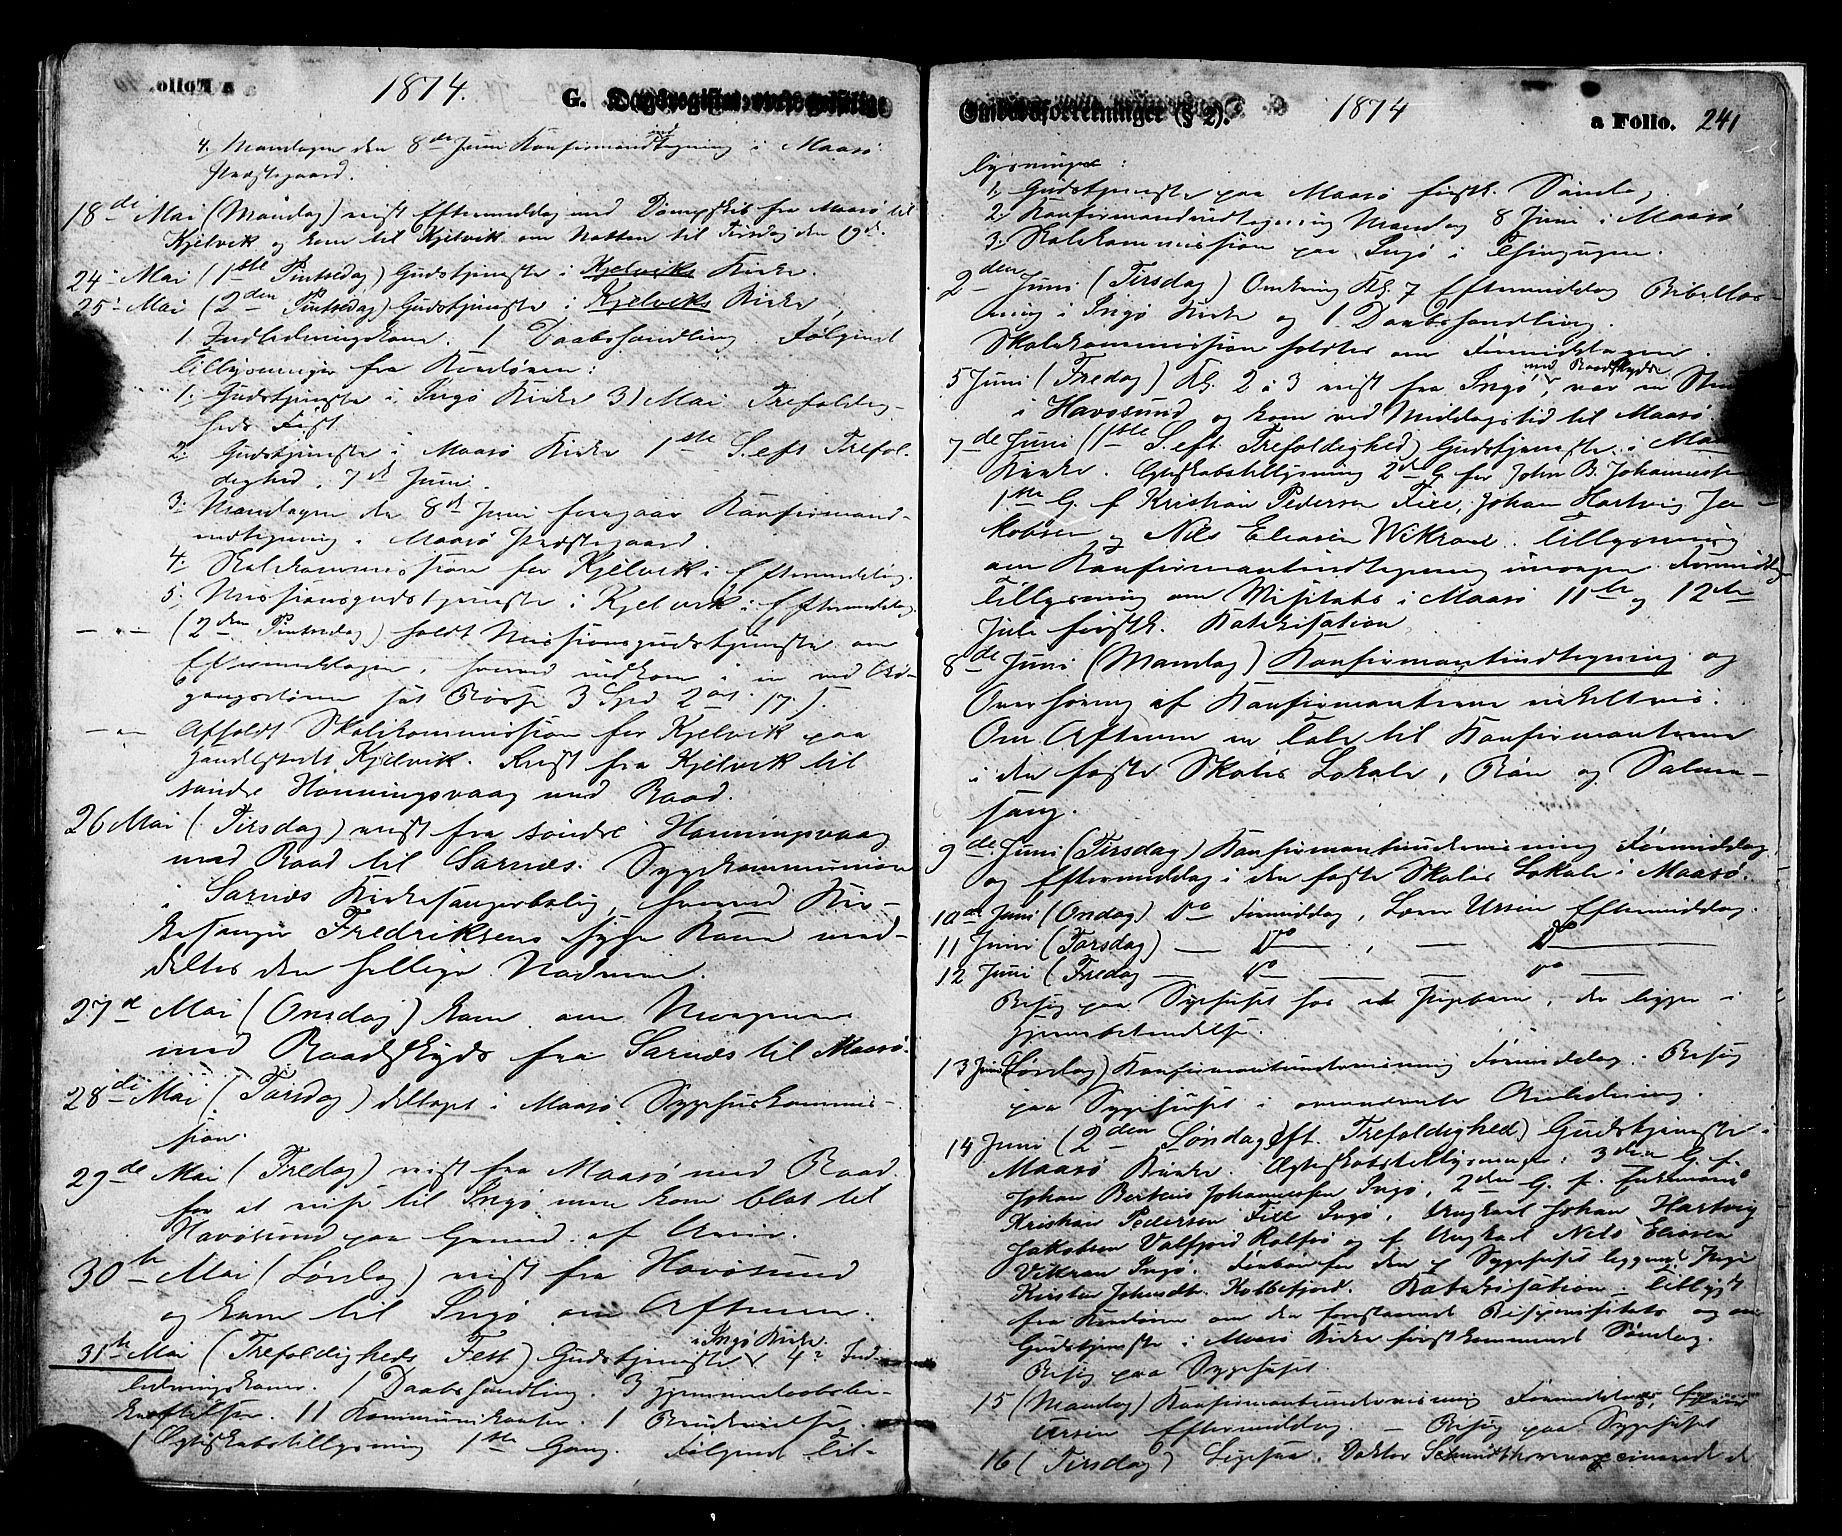 1874.
G. Dagsregister over geistlige
4. Mandagen den 8de Juni Konfirmandindtegning i Maasø
Præstegaard.
18de Mai (Mandag) reist Eftermiddag med Dampskib fra Maasø til
Kjelvik og kom til Kjelvik om Natten til Tirsdag den 19de.
24- Mai (1ste Pintsedag) Gudstjeneste i Kjelviks Kirke.
25- Mai (2den Pintsedag) Gudstjeneste i Kjelviks Kirke,
1 Indledningskone. 1 Daabshandling. Følgende
Tillysninger fra Kordøren:
1. Gudstjeneste i Ingø Kirke 31 Mai Trefoldig-
heds Fest
2. Gudstjeneste i Maasø Kirke 1ste S. eft. Trefol-
dighed, 7de Juni.
3. Mandagen den 8de Juni foregaar Konfirmand-
indtegning i Maasø Præstegaard.
4. Skolekommission for Kjelvik i Eftermiddag.
5. Missionsgudstjeneste i Kjelvik i Eftermiddag
— „ — (2den Pintsedag) holdt Missionsgudstjeneste om
Eftermiddagen, hvorved indkom i en ved Ud-
gangsdøren sat Bøsse 3 Spd 2 ort 17 s.
— „ — Afholdt Skolekommission for Kjelvik paa
Handelsstedet Kjelvik. Reist fra Kjelvik til
søndre Honningsvaag med Baad.
26 Mai (Tirsdag) reist fra søndre Honningsvaag
med Baad til Sarnæs. Sygekommunion
i Sarnæs Kirkesangerbolig, hvorved Kir-
kesanger Fredriksens syge Kone med-
deltes den hellige Nadvere.
27de Mai (Onsdag) kom om Morgenen
med Baadskyds fra Sarnæs til Maasø.
28de Mai (Torsdag) deltaget i Maasø Sygehuskommis-
sion.
29de Mai (Fredag) reist fra Maasø med Baad
for at reise til Ingø men kom blot til
Havøsund paa Grund af Veir.
30te Mai (Lørdag) reist fra Havøsund
og kom til Ingø om Aftenen.
31te Mai (Trefoldigheds Fest) Gudstjeneste i Ingø Kirke 4 Ind-
ledningskoner. 1 Daabshandling. 3 Hjemmedaabsbe-
kræftelser. 11 Kommunikanter. 1 Brudevielse.
1 Ægteskabstillysning 1ste Gang. Følgende Til-
Embedsforretninger (§ 2).
1874
a Folio. 241
lysninger:
1. Gudstjeneste paa Maasø førstk. Søndag
2. Konfirmandindtegning Mandag 8 Juni i Maasø
3. Skolekommission paa Ingø i
2den Juni (Tirsdag) Omkring Kl. 7 Eftermiddag Bibellæs-
ning i Ingø Kirke og 1 Daabshandling.
Skolekommission holdtes om Formiddagen.
5 Juni (Fredag) Kl. 2 à 3 reist fra Ingø med Baadskyds, var en Stund
i Havøsund og kom ved Middagstid til Maasø
7de Juni (1ste S. eft. Trefoldighed) Gudstjeneste i Maasø
Kirke. Ægteskabstillysning 2de G. for John B. Johannessen
1ste G. f. Kristian Pedersen File, Johan Hartvig Ja-
kobsen og Nils Eliasen Wikran. Tillysning
om Konfirmantindtegning imorgen Formiddag
Tillysning om Visitats i Maasø 11te og 12te
Juli førstk. Katekisation
8de Juni (Mandag) Konfirmantindtegning og
Overhøring af Konfirmanterne enkeltvis.
Om Aftenen en Tale til Konfirmanterne
i den faste Skoles Lokale, Bøn og Salme-
sang.
9de Juni (Tirsdag) Konfirmantundervisning Formiddag
og Eftermiddag i den faste Skoles Lokale i Maasø.
10de Juni (Onsdag) Do Formiddag, Lærer Ursin Eftermiddag.
11 Juni (Torsdag) — Do — , — Do —
12 Juni (Fredag — Do — — Do —
Besøg paa Sygehuset for et Pigebarn, der ligger i
Hjernebetændelse.
13 Juni (Lørdag) Konfirmantundervisning Formiddag. Besøg
paa Sygehuset i ovennævnte Anledning.
14 Juni (2den Søndag eft. Trefoldighed) Gudstjeneste i
Maasø Kirke. Ægteskabstillysninger: 3die G. f.
Johan Berteus Johannessen Ingø, 2den G. f. Enkemand
Kristian Pedersen File Ingø, Ungkarl Johan Hartvig
Jakobsen Valfjord Rolfsø og f. Ungkarl Nils Eliasen
Vikran Ingø. Forbøn for den p. Sygehuset liggende Pige
Kirsten Johansdt. Kobbefjord. Katekisation. Tillyst
fra Kordøren om den forestaaende Bispevisitats og om
Gudstjeneste i Maasø Kirke førstkommende Søndag.
Besøg paa Sygehuset.
15 (Mandag) Konfirmantundervisning Formiddag, Lærer
Ursin Eftermiddag. — Besøg paa Sygehuset
16 (Tirsdag) Ligesaa. Doktor Schmidt